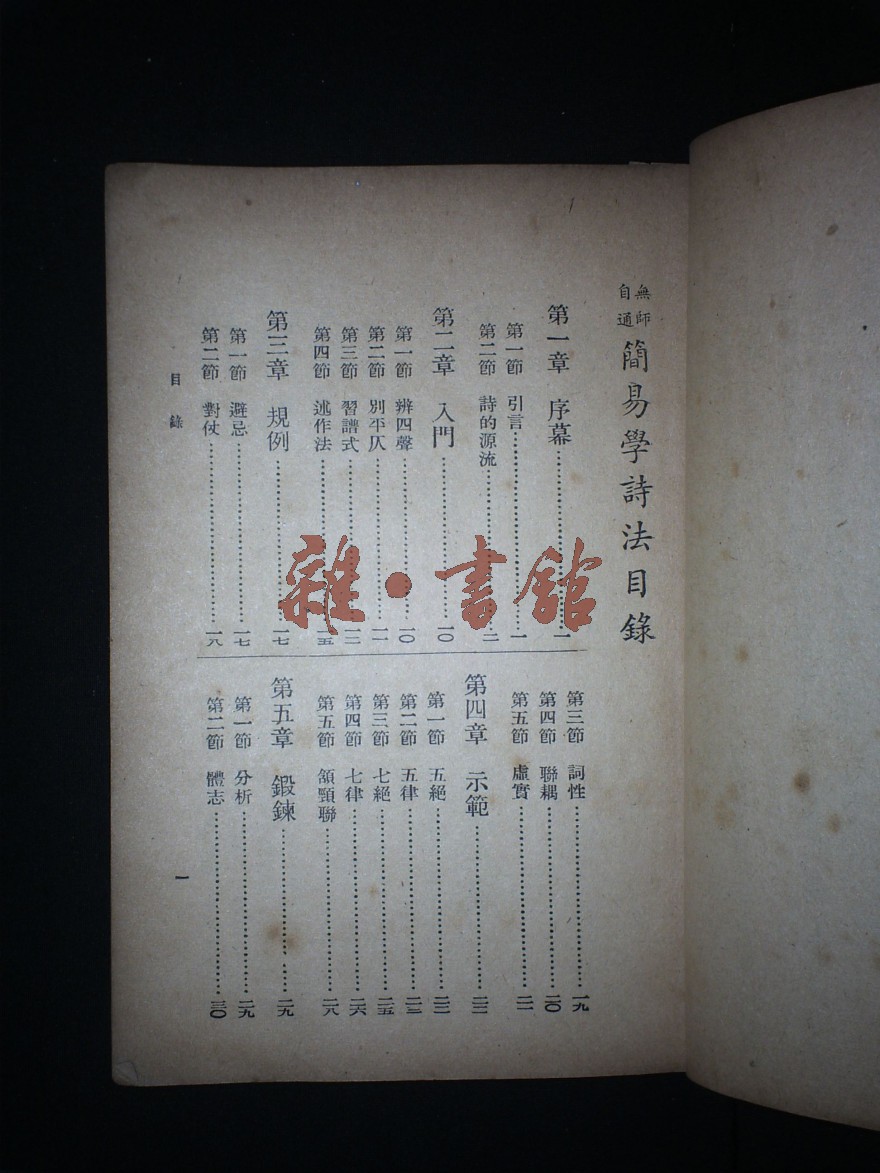 無師
自通
簡易學詩法目錄
第一章 序幕……一
第一節 引言……一
第二節 詩的源流……二
第二章 入門……一〇
第一節 辨四聲……一〇
第二節 別平仄……一一
第三節 習譜式……一二
第四節 述作法……一五
第三章 規例……一七
第一節 避忌……一七
第二節 對仗……一八
第三節 詞性……一九
第四節 聯耦……二〇
第五節 虛實……二一
第四章 示範……二二
第一節 五絕……二二
第二節 五律……二三
第三節 七絕……二五
第四節 七律……二六
第五節 頷頸聯……二八
第五章 鍛鍊……二九
第一節 分析……二九
第二節 體志……三〇
目錄
一
雜·書館